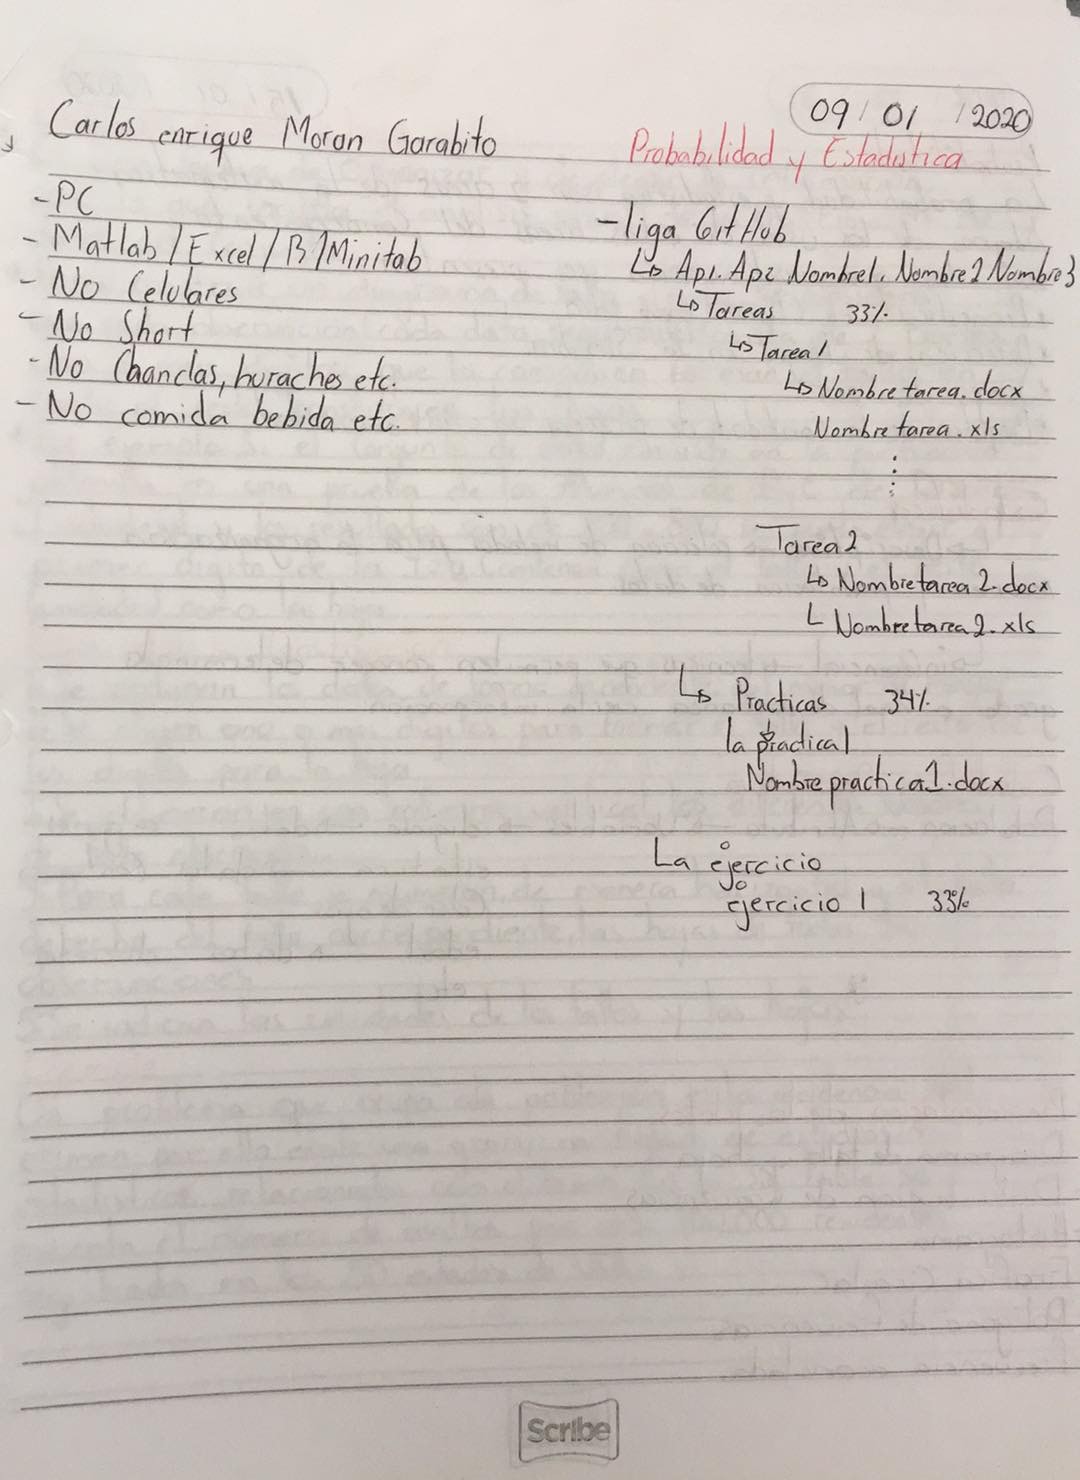 09/01/2020
Carlos enrique Moran Garabito
Probabilidad y Estadistica
-PC
- Matlab/Excel/B/Minitab
- No Celulares
- No Short
- No Chanclas, huraches etc.
- No comida bebida etc.
-liga GitHub
↳ Ap1. Ap2 Nombre1. Nombre2 Nombre3
↳ Tareas 33%
↳ Tarea1
↳ Nombretarea.docx
Nombretarea.xls
Tarea2
↳ Nombretarea2.docx
└ Nombretarea2.xls
↳ Practicas 34%
la practica1
Nombrepractica1.docx
La ejercicio
ejercicio 1 33%
Scribe